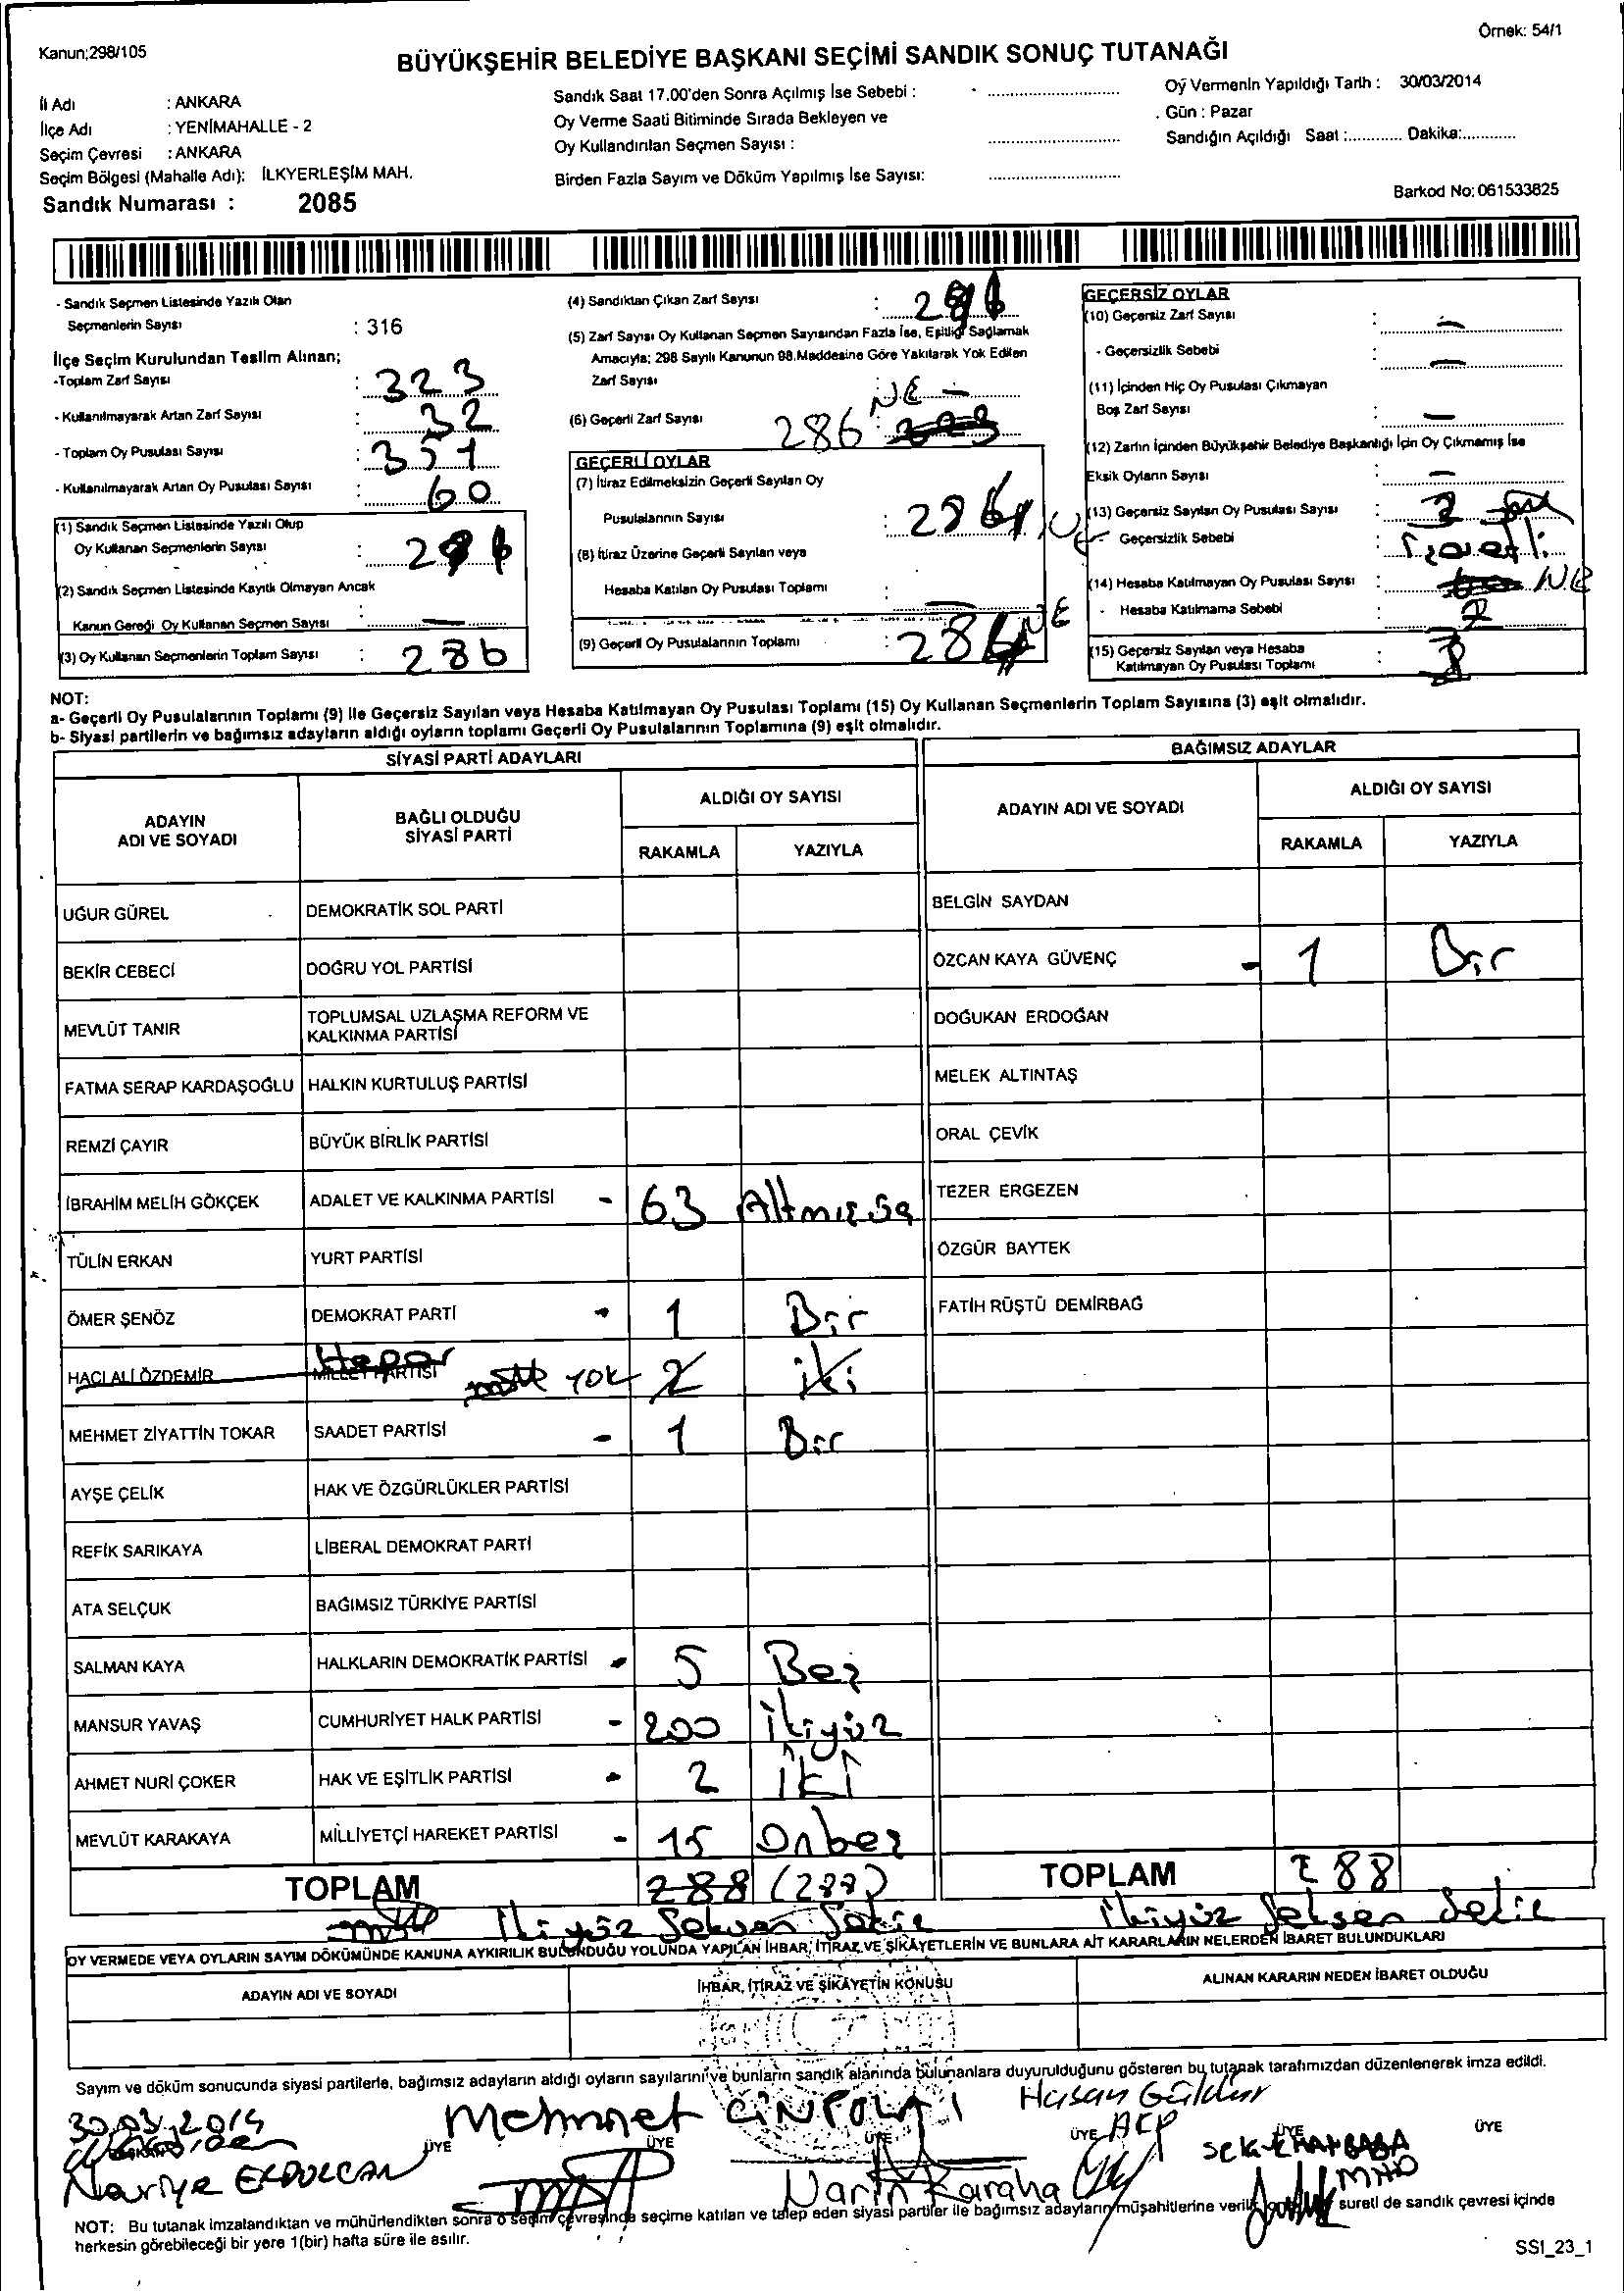 Kanun;298/105
Örnek: 54/1
BÜYÜKŞEHİR BELEDİYE BAŞKANI SEÇİMİ SANDIK SONUÇ TUTANAĞI
İl Adı : ANKARA
İlçe Adı : YENİMAHALLE - 2
Seçim Çevresi : ANKARA
Seçim Bölgesi (Mahalle Adı): İLKYERLEŞİM MAH.
Sandık Numarası : 2085
Sandık Saat 17.00'den Sonra Açılmış İse Sebebi :
Oy Verme Saati Bitiminde Sırada Bekleyen ve
Oy Kullandırılan Seçmen Sayısı :
Birden Fazla Sayım ve Döküm Yapılmış İse Sayısı:
Oy Vermenin Yapıldığı Tarih : 30/03/2014
Gün : Pazar
Sandığın Açıldığı Saat :............ Dakika:............
Barkod No: 061533825
- Sandık Seçmen Listesinde Yazılı Olan
Seçmenlerin Sayısı : 316
İlçe Seçim Kurulundan Teslim Alınan;
-Toplam Zarf Sayısı : 323
- Kullanılmayarak Artan Zarf Sayısı : 32
- Toplam Oy Pusulası Sayısı : 351
- Kullanılmayarak Artan Oy Pusulası Sayısı : 60
(1) Sandık Seçmen Listesinde Yazılı Olup
Oy Kullanan Seçmenlerin Sayısı :
(2) Sandık Seçmen Listesinde Kayıtlı Olmayan Ancak
Kanun Gereği Oy Kullanan Seçmen Sayısı : —
(3) Oy Kullanan Seçmenlerin Toplam Sayısı : 286
(4) Sandıktan Çıkan Zarf Sayısı :
(5) Zarf Sayısı Oy Kullanan Seçmen Sayısından Fazla İse, Eşitliği Sağlamak
Amacıyla; 298 Sayılı Kanunun 98.Maddesine Göre Yakılarak Yok Edilen
Zarf Sayısı : NE —
(6) Geçerli Zarf Sayısı 286 :
GEÇERLİ OYLAR
(7) İtiraz Edilmeksizin Geçerli Sayılan Oy
Pusulalarının Sayısı : 286 NE
(8) İtiraz Üzerine Geçerli Sayılan veya
Hesaba Katılan Oy Pusulası Toplamı : —
(9) Geçerli Oy Pusulalarının Toplamı : 286 NE
GEÇERSİZ OYLAR
(10) Geçersiz Zarf Sayısı : —
- Geçersizlik Sebebi : —
(11) İçinden Hiç Oy Pusulası Çıkmayan
Boş Zarf Sayısı : —
(12) Zarfın İçinden Büyükşehir Belediye Başkanlığı İçin Oy Çıkmamış İse
Eksik Oyların Sayısı : —
(13) Geçersiz Sayılan Oy Pusulası Sayısı :
- Geçersizlik Sebebi : İşaretli
(14) Hesaba Katılmayan Oy Pusulası Sayısı : N.E
- Hesaba Katılmama Sebebi : 2
(15) Geçersiz Sayılan veya Hesaba
Katılmayan Oy Pusulası Toplamı :
NOT:
a- Geçerli Oy Pusulalarının Toplamı (9) ile Geçersiz Sayılan veya Hesaba Katılmayan Oy Pusulası Toplamı (15) Oy Kullanan Seçmenlerin Toplam Sayısına (3) eşit olmalıdır.
b- Siyasi partilerin ve bağımsız adayların aldığı oyların toplamı Geçerli Oy Pusulalarının Toplamına (9) eşit olmalıdır.
SİYASİ PARTİ ADAYLARI
ADAYIN ADI VE SOYADI
BAĞLI OLDUĞU SİYASİ PARTİ
ALDIĞI OY SAYISI
RAKAMLA YAZIYLA
UĞUR GÜREL DEMOKRATİK SOL PARTİ
BEKİR CEBECİ DOĞRU YOL PARTİSİ
MEVLÜT TANIR TOPLUMSAL UZLAŞMA REFORM VE
KALKINMA PARTİSİ
FATMA SERAP KARDAŞOĞLU HALKIN KURTULUŞ PARTİSİ
REMZİ ÇAYIR BÜYÜK BİRLİK PARTİSİ
İBRAHİM MELİH GÖKÇEK ADALET VE KALKINMA PARTİSİ - 63 Altmış
TÜLİN ERKAN YURT PARTİSİ
ÖMER ŞENÖZ DEMOKRAT PARTİ - 1 Bir
HACI ALİ ÖZDEMİR MİLLET PARTİSİ Hepar YOK 2 iki
MEHMET ZİYATTİN TOKAR SAADET PARTİSİ - 1 Bir
AYŞE ÇELİK HAK VE ÖZGÜRLÜKLER PARTİSİ
REFİK SARIKAYA LİBERAL DEMOKRAT PARTİ
ATA SELÇUK BAĞIMSIZ TÜRKİYE PARTİSİ
SALMAN KAYA HALKLARIN DEMOKRATİK PARTİSİ - 5 Beş
MANSUR YAVAŞ CUMHURİYET HALK PARTİSİ - 200 İkiyüz
AHMET NURİ ÇOKER HAK VE EŞİTLİK PARTİSİ - 2 İKİ
MEVLÜT KARAKAYA MİLLİYETÇİ HAREKET PARTİSİ - 15 Onbeş
TOPLAM 288 (287)
İkiyüz Seksen Sekiz
BAĞIMSIZ ADAYLAR
ADAYIN ADI VE SOYADI
ALDIĞI OY SAYISI
RAKAMLA YAZIYLA
BELGİN SAYDAN
ÖZCAN KAYA GÜVENÇ - 1 Bir
DOĞUKAN ERDOĞAN
MELEK ALTINTAŞ
ORAL ÇEVİK
TEZER ERGEZEN
ÖZGÜR BAYTEK
FATİH RÜŞTÜ DEMİRBAĞ
TOPLAM 288
İkiyüz Seksen Sekiz
OY VERMEDE VEYA OYLARIN SAYIM DÖKÜMÜNDE KANUNA AYKIRILIK BULUNDUĞU YOLUNDA YAPILAN İHBAR, İTİRAZ VE ŞİKÂYETLERİN VE BUNLARA AİT KARARLARIN NELERDEN İBARET BULUNDUKLARI
ADAYIN ADI VE SOYADI İHBAR, İTİRAZ VE ŞİKÂYETİN KONUSU ALINAN KARARIN NEDEN İBARET OLDUĞU
Sayım ve döküm sonucunda siyasi partilerle, bağımsız adayların aldığı oyların sayılarını ve bunların sandık alanında bulunanlara duyurulduğunu gösteren bu tutanak tarafımızdan düzenlenerek imza edildi.
30.03.2014 Mehmet CİNPOLAT Hasan Güldür
BAŞKAN ÜYE ÜYE ÜYE ÜYE AKP ÜYE ÜYE
Nariye ERDOĞCAN Narin Karaha MHP
NOT: Bu tutanak imzalandıktan ve mühürlendikten sonra o seçim çevresinde seçime katılan ve talep eden siyasi partiler ile bağımsız adayların müşahitlerine verilir, sureti de sandık çevresi içinde
herkesin görebileceği bir yere 1(bir) hafta süre ile asılır.
SSI_23_1